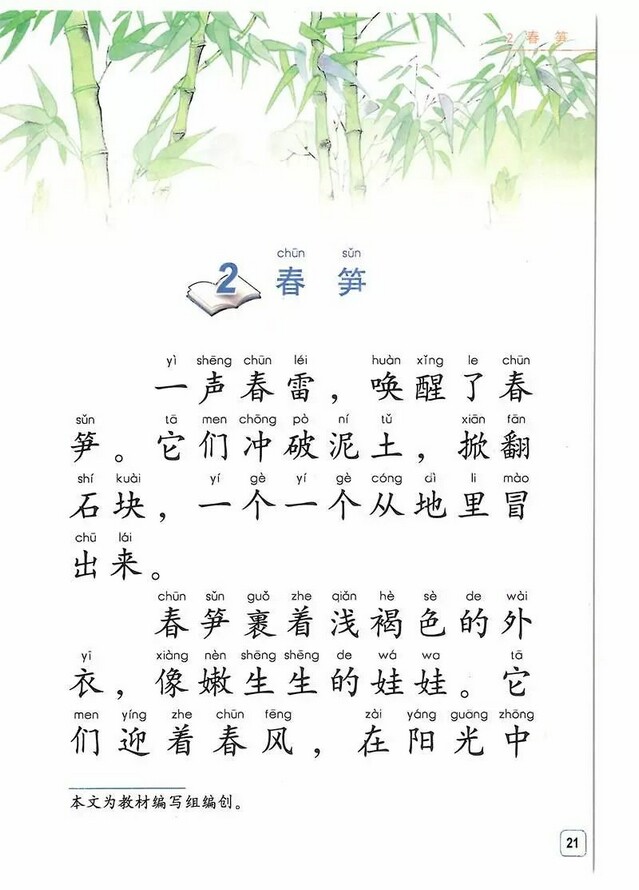 2 春笋
chūn sǔn
2 春笋
yì shēng chūn léi huàn xǐng le chūn
一声春雷，唤醒了春
sǔn tā men chōng pò ní tǔ xiān fān
笋。它们冲破泥土，掀翻
shí kuài yí gè yí gè cóng dì li mào
石块，一个一个从地里冒
chū lái
出来。
chūn sǔn guǒ zhe qiǎn hè sè de wài
春笋裹着浅褐色的外
yī xiàng nèn shēng shēng de wá wa tā
衣，像嫩生生的娃娃。它
men yíng zhe chūn fēng zài yáng guāng zhōng
们迎着春风，在阳光中
本文为教材编写组编创。
21